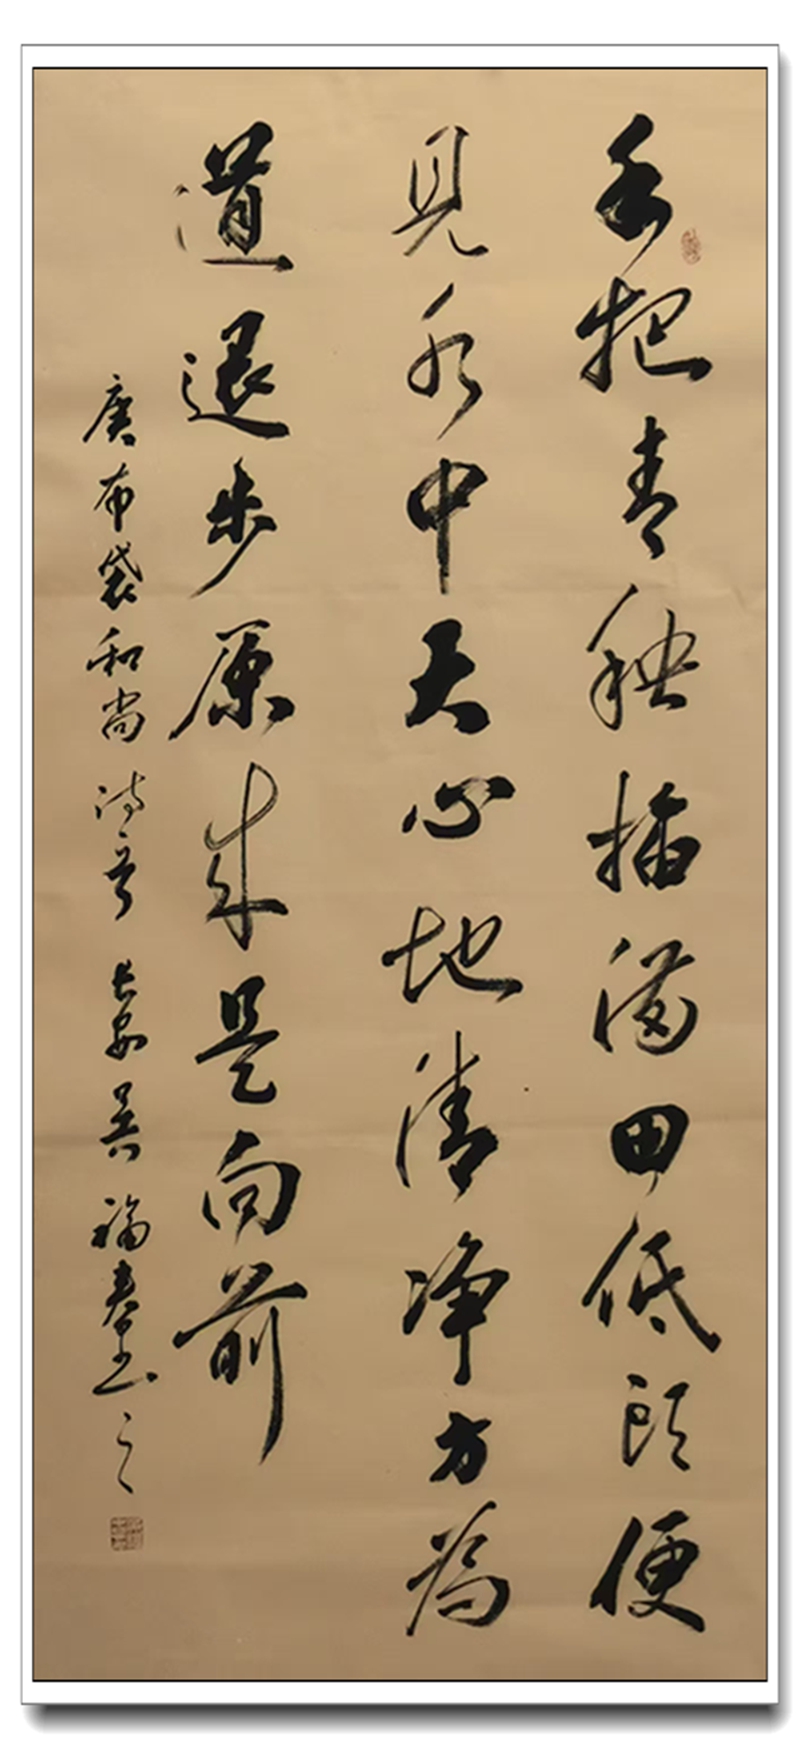 手把青秧插满田低头便
见水中天心地清净方为
道退步原来是向前
唐布袋和尚诗一首 长安吴福春书